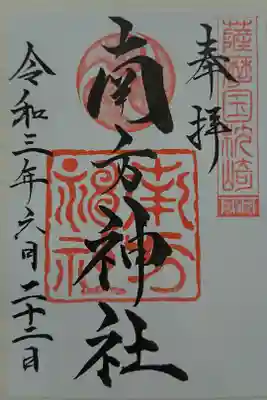 薩摩国枕崎
奉拝
南方神社
南方
神社
令和三年六月二十二日